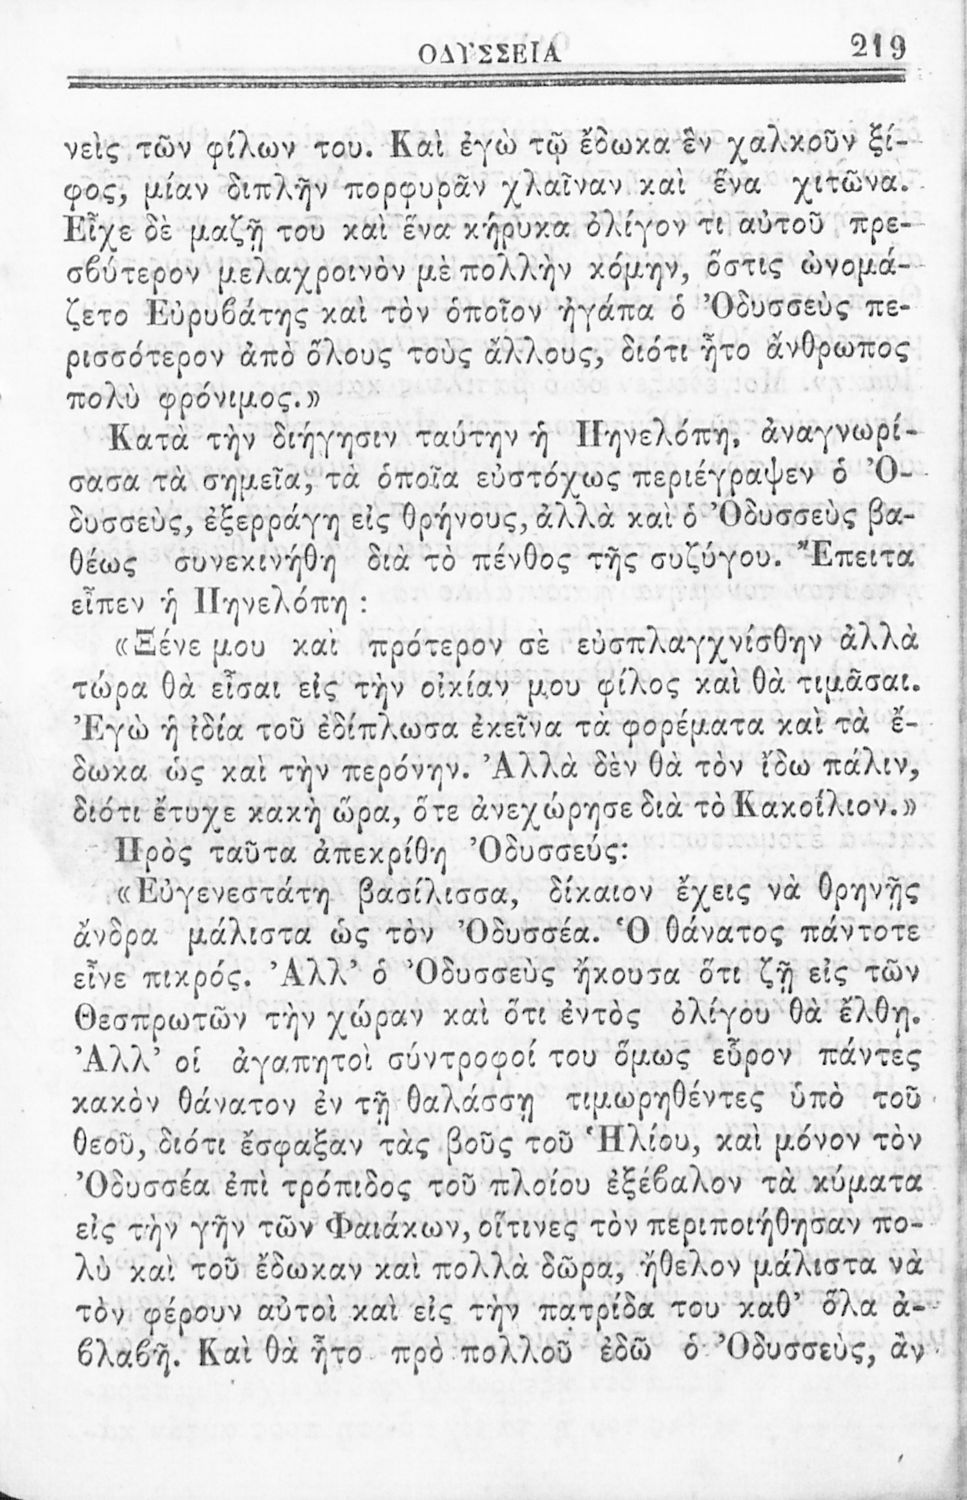 ΟΔΥΣΣΕΙΑ 219
νεὶς τῶν φίλων του. Καὶ ἐγὼ τῷ ἔδωκα ἓν χαλκοῦν ξί-
φος, μίαν διπλῆν πορφυρᾶν χλαῖναν καὶ ἕνα χιτῶνα.
Εἶχε δὲ μαζῇ του καὶ ἕνα κήρυκα ὀλίγον τι αὐτοῦ πρε-
σϐύτερον μελαχροινὸν μὲ πολλὴν κόμην, ὅστις ὠνομά-
ζετο Εὐρυϐάτης καὶ τὸν ὁποῖον ἠγάπα ὁ Ὀδυσσεὺς πε-
ρισσότερον ἀπὸ ὅλους τοὺς ἄλλους, διότι ἦτο ἄνθρωπος
πολὺ φρόνιμος.»
Κατὰ τὴν διήγησιν ταύτην ἡ Πηνελόπη, ἀναγνωρί-
σασα τὰ σημεῖα, τὰ ὁποῖα εὐστόχως περιέγραψεν ὁ Ὀ-
δυσσεὺς, ἐξερράγη εἰς θρήνους, ἀλλὰ καὶ ὁ Ὀδυσσεὺς βα-
θέως συνεκινήθη διὰ τὸ πένθος τῆς συζύγου. Ἔπειτα
εἶπεν ἡ Πηνελόπη :
«Ξένε μου καὶ πρότερον σὲ εὐσπλαγχνίσθην ἀλλὰ
τώρα θὰ εἶσαι εἰς τὴν οἰκίαν μου φίλος καὶ θὰ τιμᾶσαι.
Ἐγὼ ἡ ἰδία τοῦ ἐδίπλωσα ἐκεῖνα τὰ φορέματα καὶ τὰ ἔ-
δωκα ὡς καὶ τὴν περόνην. Ἀλλὰ δὲν θὰ τὸν ἴδω πάλιν,
διότι ἔτυχε κακὴ ὥρα, ὅτε ἀνεχώρησε διὰ τὸ Κακοΐλιον.»
Πρὸς ταῦτα ἀπεκρίθη Ὀδυσσεύς:
«Εὐγενεστάτη βασίλισσα, δίκαιον ἔχεις νὰ θρηνῇς
ἄνδρα μάλιστα ὡς τὸν Ὀδυσσέα. Ὁ θάνατος πάντοτε
εἶνε πικρός. Ἀλλ’ ὁ Ὀδυσσεὺς ἤκουσα ὅτι ζῇ εἰς τῶν
Θεσπρωτῶν τὴν χώραν καὶ ὅτι ἐντὸς ὀλίγου θὰ ἔλθῃ.
Ἀλλ’ οἱ ἀγαπητοὶ σύντροφοί του ὅμως εὗρον πάντες
κακὸν θάνατον ἐν τῇ θαλάσσῃ τιμωρηθέντες ὑπὸ τοῦ
θεοῦ, διότι ἔσφαξαν τὰς βοῦς τοῦ Ἡλίου, καὶ μόνον τὸν
Ὀδυσσέα ἐπὶ τρόπιδος τοῦ πλοίου ἐξέϐαλον τὰ κύματα
εἰς τὴν γῆν τῶν Φαιάκων, οἵτινες τὸν περιποιήθησαν πο-
λὺ καὶ τοῦ ἔδωκαν καὶ πολλὰ δῶρα, ἤθελον μάλιστα νὰ
τὸν φέρουν αὐτοὶ καὶ εἰς τὴν πατρίδα του καθ’ ὅλα ἀ-
ϐλαϐῆ. Καὶ θὰ ἦτο πρὸ πολλοῦ ἐδῶ ὁ Ὀδυσσεὺς, ἂν